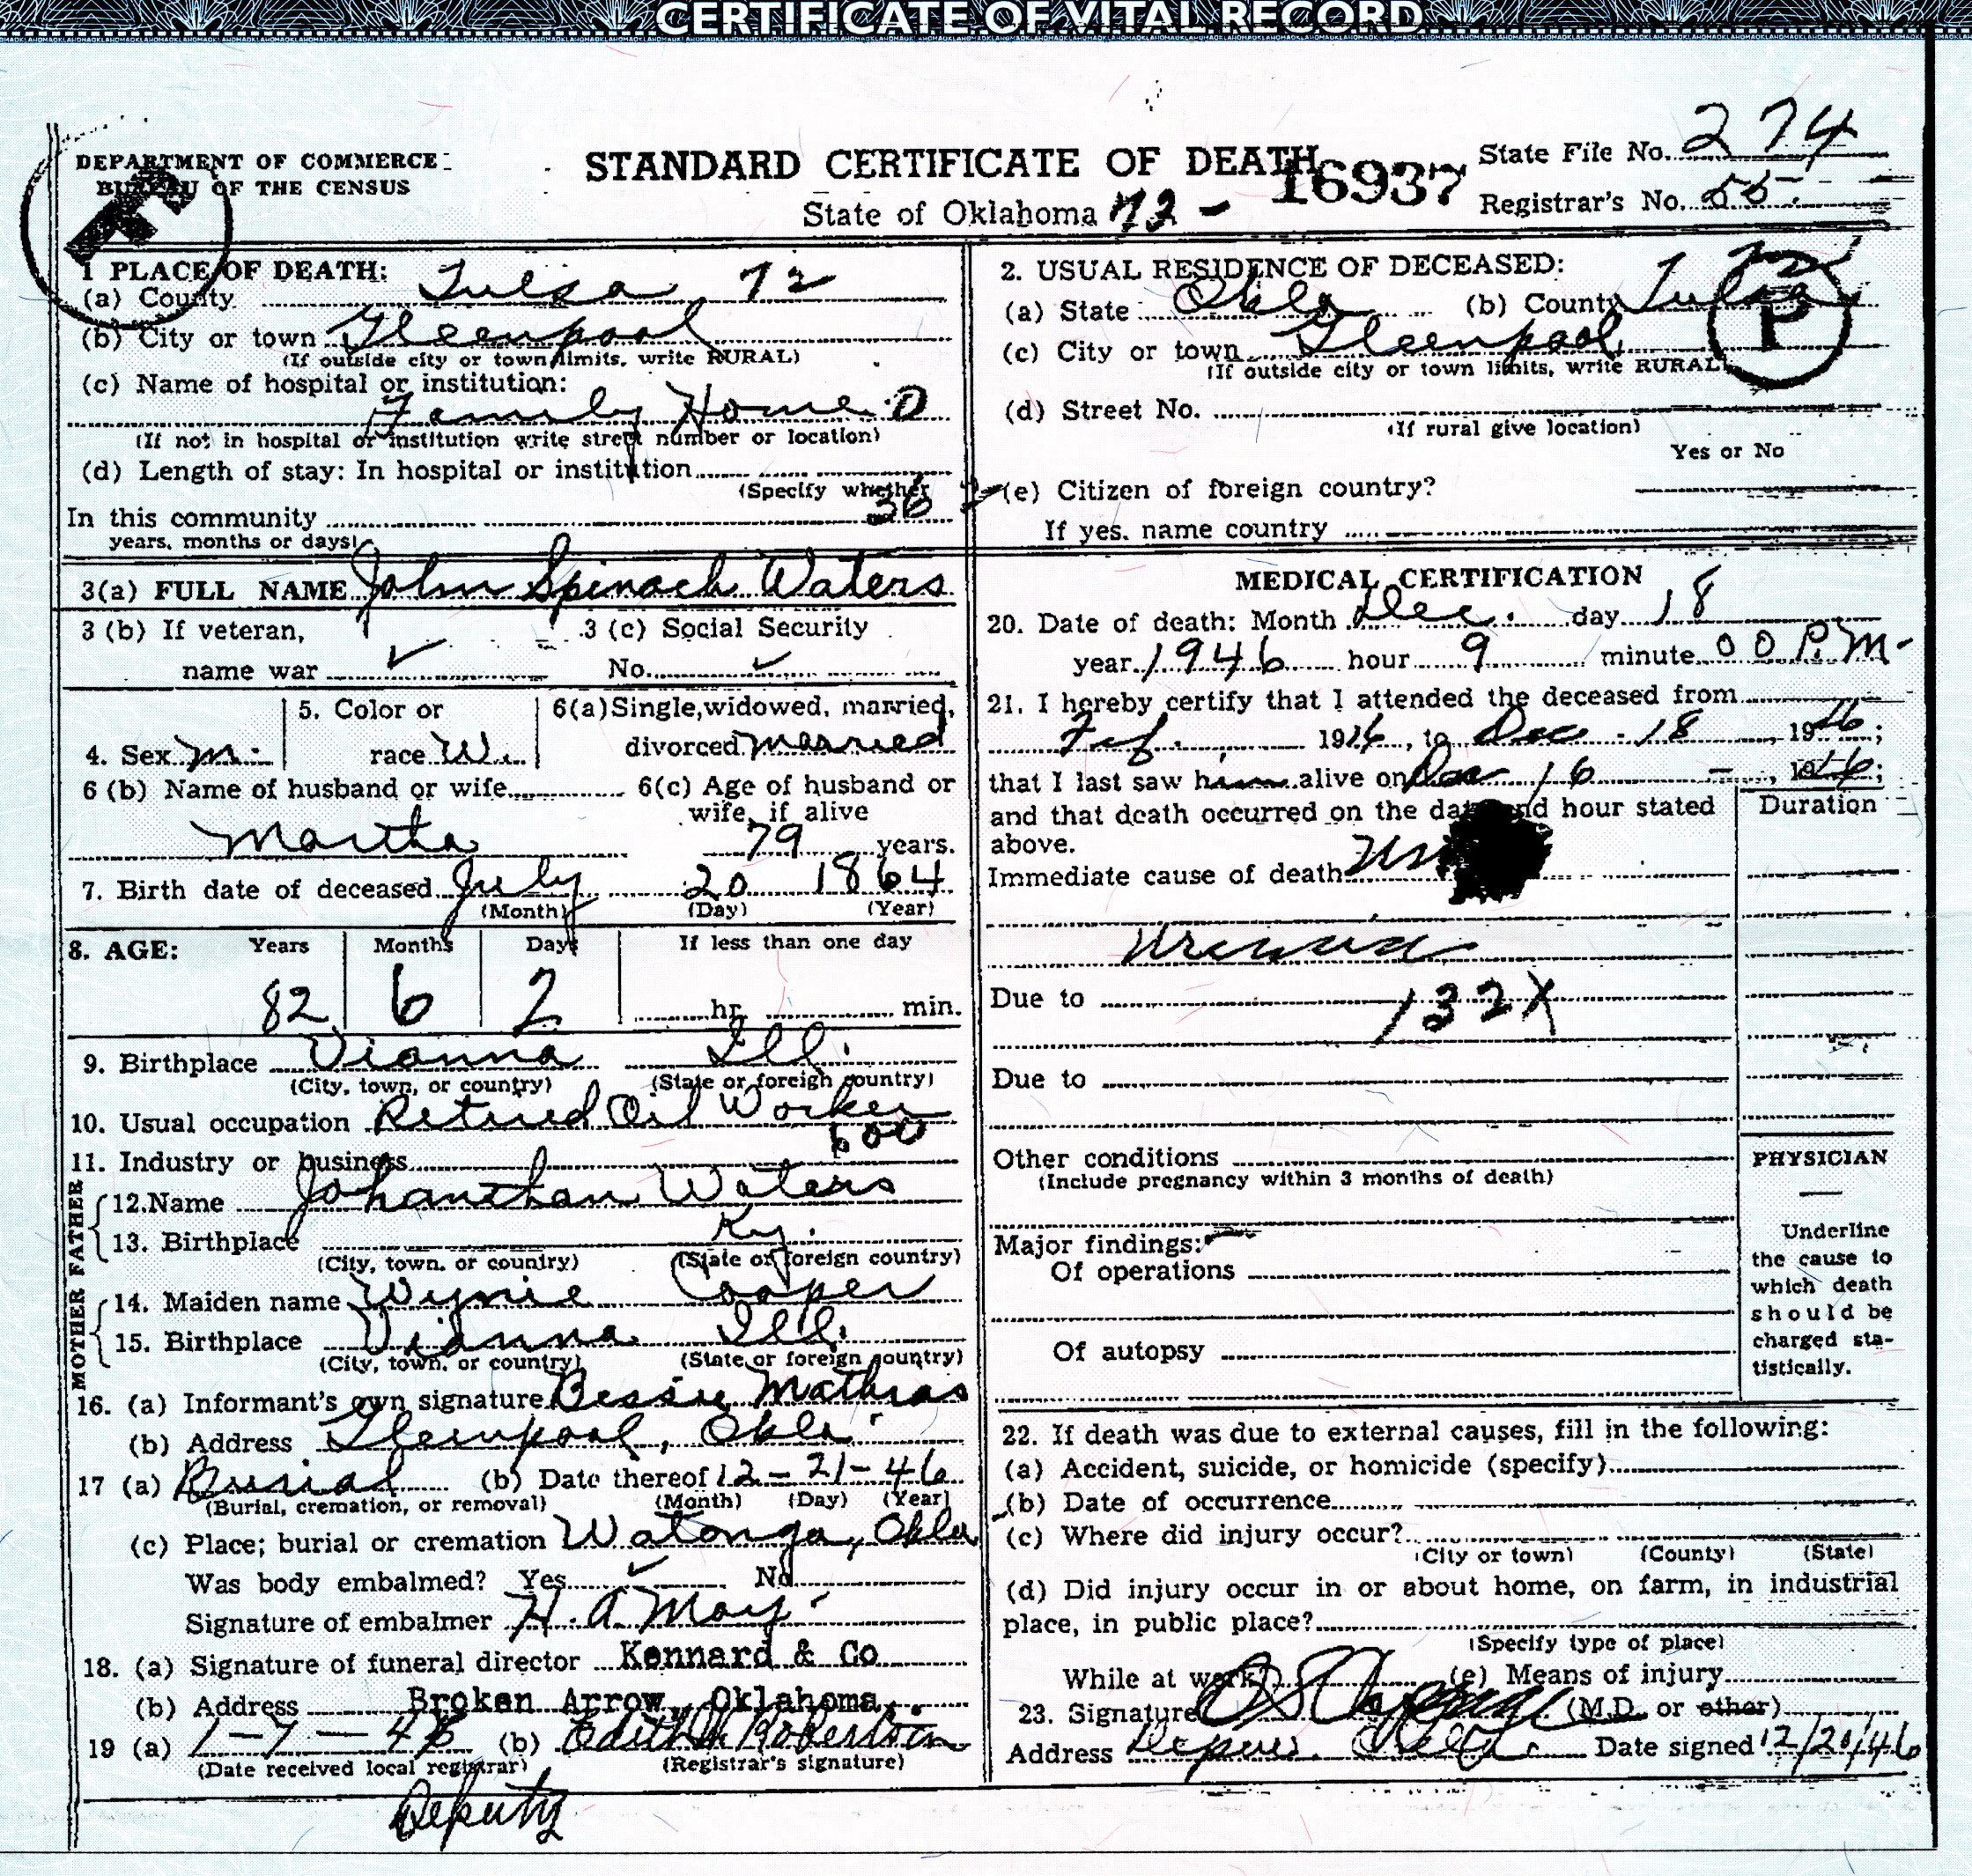 CERTIFICATE OF VITAL RECORD
DEPARTMENT OF COMMERCE
BUREAU OF THE CENSUS
STANDARD CERTIFICATE OF DEATH
State of Oklahoma 72 - 16937
State File No. 274
Registrar's No. 55
1 PLACE OF DEATH:
(a) County Tulsa 72
(b) City or town Gleenpool
(If outside city or town limits, write RURAL)
(c) Name of hospital or institution:
Family Home 0
(If not in hospital or institution write street number or location)
(d) Length of stay: In hospital or institution
(Specify whether
In this community 36
years, months or days)
2. USUAL RESIDENCE OF DECEASED:
(a) State Okla (b) County Tulsa
P
(c) City or town Gleenpool
(If outside city or town limits, write RURAL)
(d) Street No.
(If rural give location)
Yes or No
(e) Citizen of foreign country?
If yes, name country
3(a) FULL NAME John Spinach Waters
3 (b) If veteran, 3 (c) Social Security
name war ✓ No. ✓
4. Sex M. 5. Color or race W. 6(a) Single, widowed, married, divorced married
6 (b) Name of husband or wife 6(c) Age of husband or
wife, if alive
Martha 79 years.
7. Birth date of deceased July 20 1864
(Month) (Day) (Year)
8. AGE: Years Months Days If less than one day
82 6 2 hr. min.
9. Birthplace Vianna Ill.
(City, town, or country) (State or foreign country)
10. Usual occupation Retired Oil Worker
600
11. Industry or business
FATHER
12. Name Johanthan Waters
13. Birthplace Ky.
(City, town, or country) (State or foreign country)
MOTHER
14. Maiden name Wynie Cooper
15. Birthplace Vianna Ill.
(City, town, or country) (State or foreign country)
16. (a) Informant's own signature Bessie Mathias
(b) Address Gleenpool, Okla.
17 (a) Burial (b) Date thereof 12-21-46
(Burial, cremation, or removal) (Month) (Day) (Year)
(c) Place; burial or cremation Watonga, Okla
Was body embalmed? Yes ✓ No
Signature of embalmer H. A. May
18. (a) Signature of funeral director Kennard & Co
(b) Address Broken Arrow, Oklahoma.
19 (a) 1-7-46 (b) Edith M Robertson
(Date received local registrar) (Registrar's signature)
Deputy
MEDICAL CERTIFICATION
20. Date of death: Month Dec. day 18
year 1946 hour 9 minute 00 P.M.
21. I hereby certify that I attended the deceased from
1946, to Dec. 18, 1946;
that I last saw him alive on Dec 16, 1946;
and that death occurred on the date and hour stated
above.
Duration
Immediate cause of death
Uremia
Due to 132X
Due to
Other conditions
(Include pregnancy within 3 months of death)
Major findings:
Of operations
Of autopsy
PHYSICIAN
Underline
the cause to
which death
should be
charged sta-
tistically.
22. If death was due to external causes, fill in the following:
(a) Accident, suicide, or homicide (specify)
(b) Date of occurrence
(c) Where did injury occur?
(City or town) (County) (State)
(d) Did injury occur in or about home, on farm, in industrial
place, in public place?
(Specify type of place)
While at work? (e) Means of injury
23. Signature (M.D. or other)
Address Date signed 12/20/46